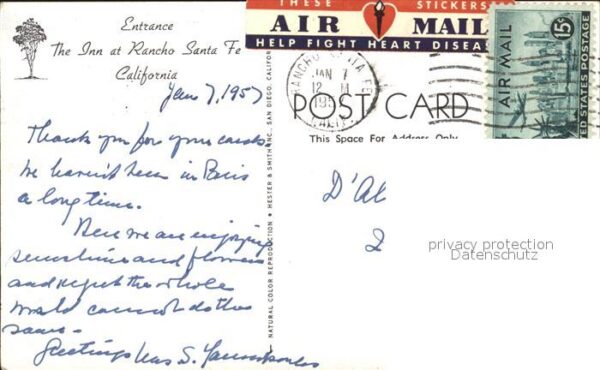 Entrance
The Inn at Rancho Santa Fe
California
Jan 7, 1957
Thank you for your cards
We haven't been in Paris
a long time.
Here we are enjoying
sunshine and flowers
and regret the whole
world cannot do the
same.
Greetings Mrs S.
NATURAL COLOR REPRODUCTION • HESTER & SMITH, INC., SAN DIEGO, CALIF.
THESE STICKERS
AIR MAIL
HELP FIGHT HEART DISEASE
RANCHO SANTA FE
JAN 7
12 M
195
CALIF.
POST CARD
This Space For Address Only
15¢
AIR MAIL
UNITED STATES POSTAGE
D'Al
2
privacy protection
Datenschutz